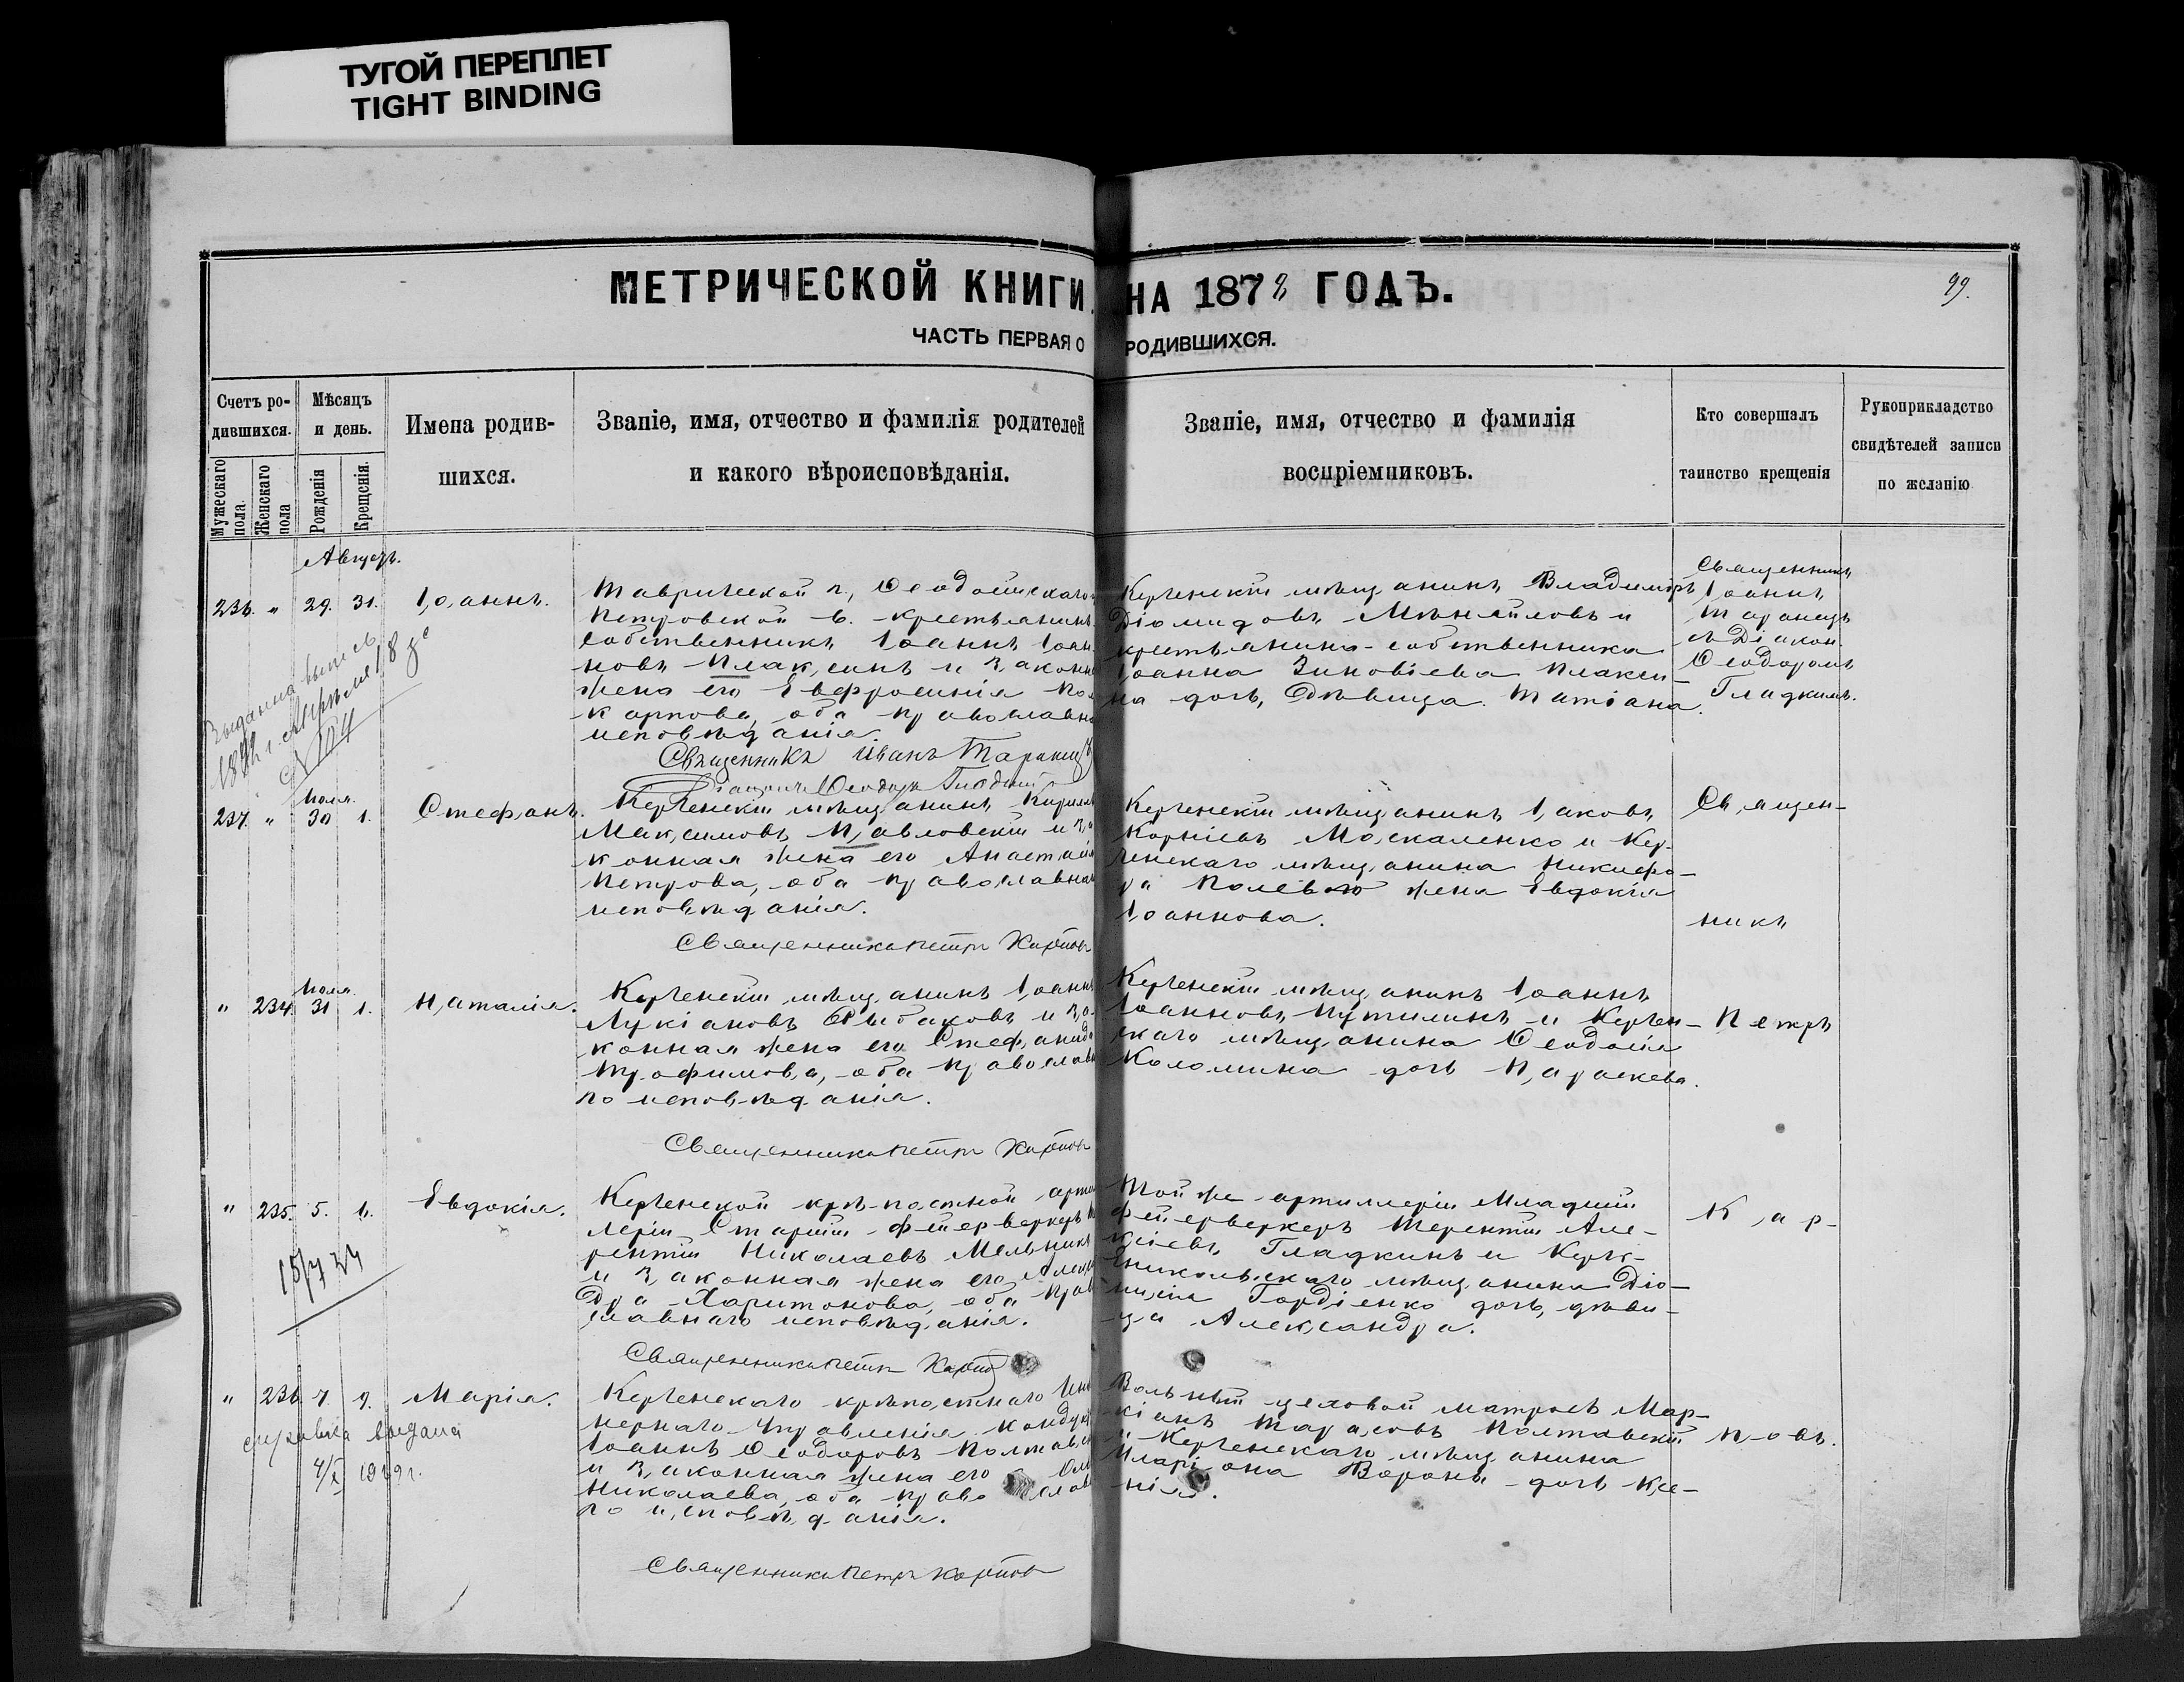 ТУГОЙ ПЕРЕПЛЕТ
TIGHT BINDING
МЕТРИЧЕСКОЙ КНИГИ НА 1872 ГОДЪ.
99.
ЧАСТЬ ПЕРВАЯ О РОДИВШИХСЯ.
Счетъ ро-
дившихся.
Мужескаго
пола.
Женскаго
пола
Мѣсяцъ
и день.
Рожденія
Крещенія.
Имена родив-
шихся.
Званіе, имя, отчество и фамилія родителей
и какого вѣроисповѣданія.
Званіе, имя, отчество и фамилія
воспріемниковъ.
Кто совершалъ
таинство крещенія
Рукоприкладство
свидѣтелей записи
по желанію
Августъ.
236. " 29. 31. Іоаннъ.
Таврической г., Ѳеодосійскаго
Петровской в. крестьянинъ
собственникъ Іоаннъ Іоан
новъ Плаксинъ и законн
жена его Евфросинія По
карпова, оба православн
исповѣданія.
Священникъ Иванъ Таранецъ
Діаконъ Ѳеодоръ Гладкій
Керченскій мѣщанинъ Владиміръ
Діомидовъ Мѣнайловъ и
крестьянина-собственника
Іоанна Зиновіева Плакси-
на дочь, дѣвица Татіана.
Священникъ
Іоаннъ
Таранецъ
съ Діакон.
Ѳеодоромъ
Гладкимъ.
Выдана выпись
№ 104
237. " Іюля. 30 1. Стефанъ.
Керченскій мѣщанинъ Кирилл
Максимовъ Павловскій и за
конная жена его Анастасія
Петрова, оба православнаг
исповѣданія.
Священникъ Петръ Карповъ
Керченскій мѣщанинъ Іаковъ
Корніевъ Москаленко и Кер-
ченскаго мѣщанина Никифо-
ра Полевого жена Евдокія
Іоаннова.
Священ-
никъ
" 234. Іюля. 31 1. Наталія.
Керченскій мѣщанинъ Іоанн
Лукіановъ Рыбаковъ и за-
конная жена его Стефанида
Трофимова, оба православн
го исповѣданія.
Священникъ Петръ Карповъ
Керченскій мѣщанинъ Іоаннъ
Іоанновъ Путилинъ и Керчен-
скаго мѣщанина Ѳеодосія
Коломина дочь Параскева.
Петръ
" 235. 5. 6. Евдокія.
Керченской крѣпостной арти
леріи Старшій фейерверкеръ
рентій Николаевъ Мельник
и законная жена его Алекса
дра Харитонова, оба прав
славнаго исповѣданія.
Священникъ Петръ Карповъ
Той же артиллеріи Младшій
фейерверкеръ Терентій Але-
ксіевъ Гладкинъ и Керчь-
Еникольскаго мѣщанина Діо-
нисія Гордіенко дочь, дѣви-
ца Александра.
Кар-
" 236. 7. 9. Марія.
справка выдана
4/X 1929 г.
Керченскаго крѣпостнаго Инж
нернаго Управленія кондук
Іоаннъ Ѳеодоровъ Полтавск
и законная жена его
Николаева, оба православ
го исповѣданія.
Священникъ Петръ Карповъ
Вольный цеховой матросъ Мар-
кіанъ Тарасовъ Полтавскій
и Керченскаго мѣщанина
Иларіона Воронъ дочь Ксе-
нія.
повъ.